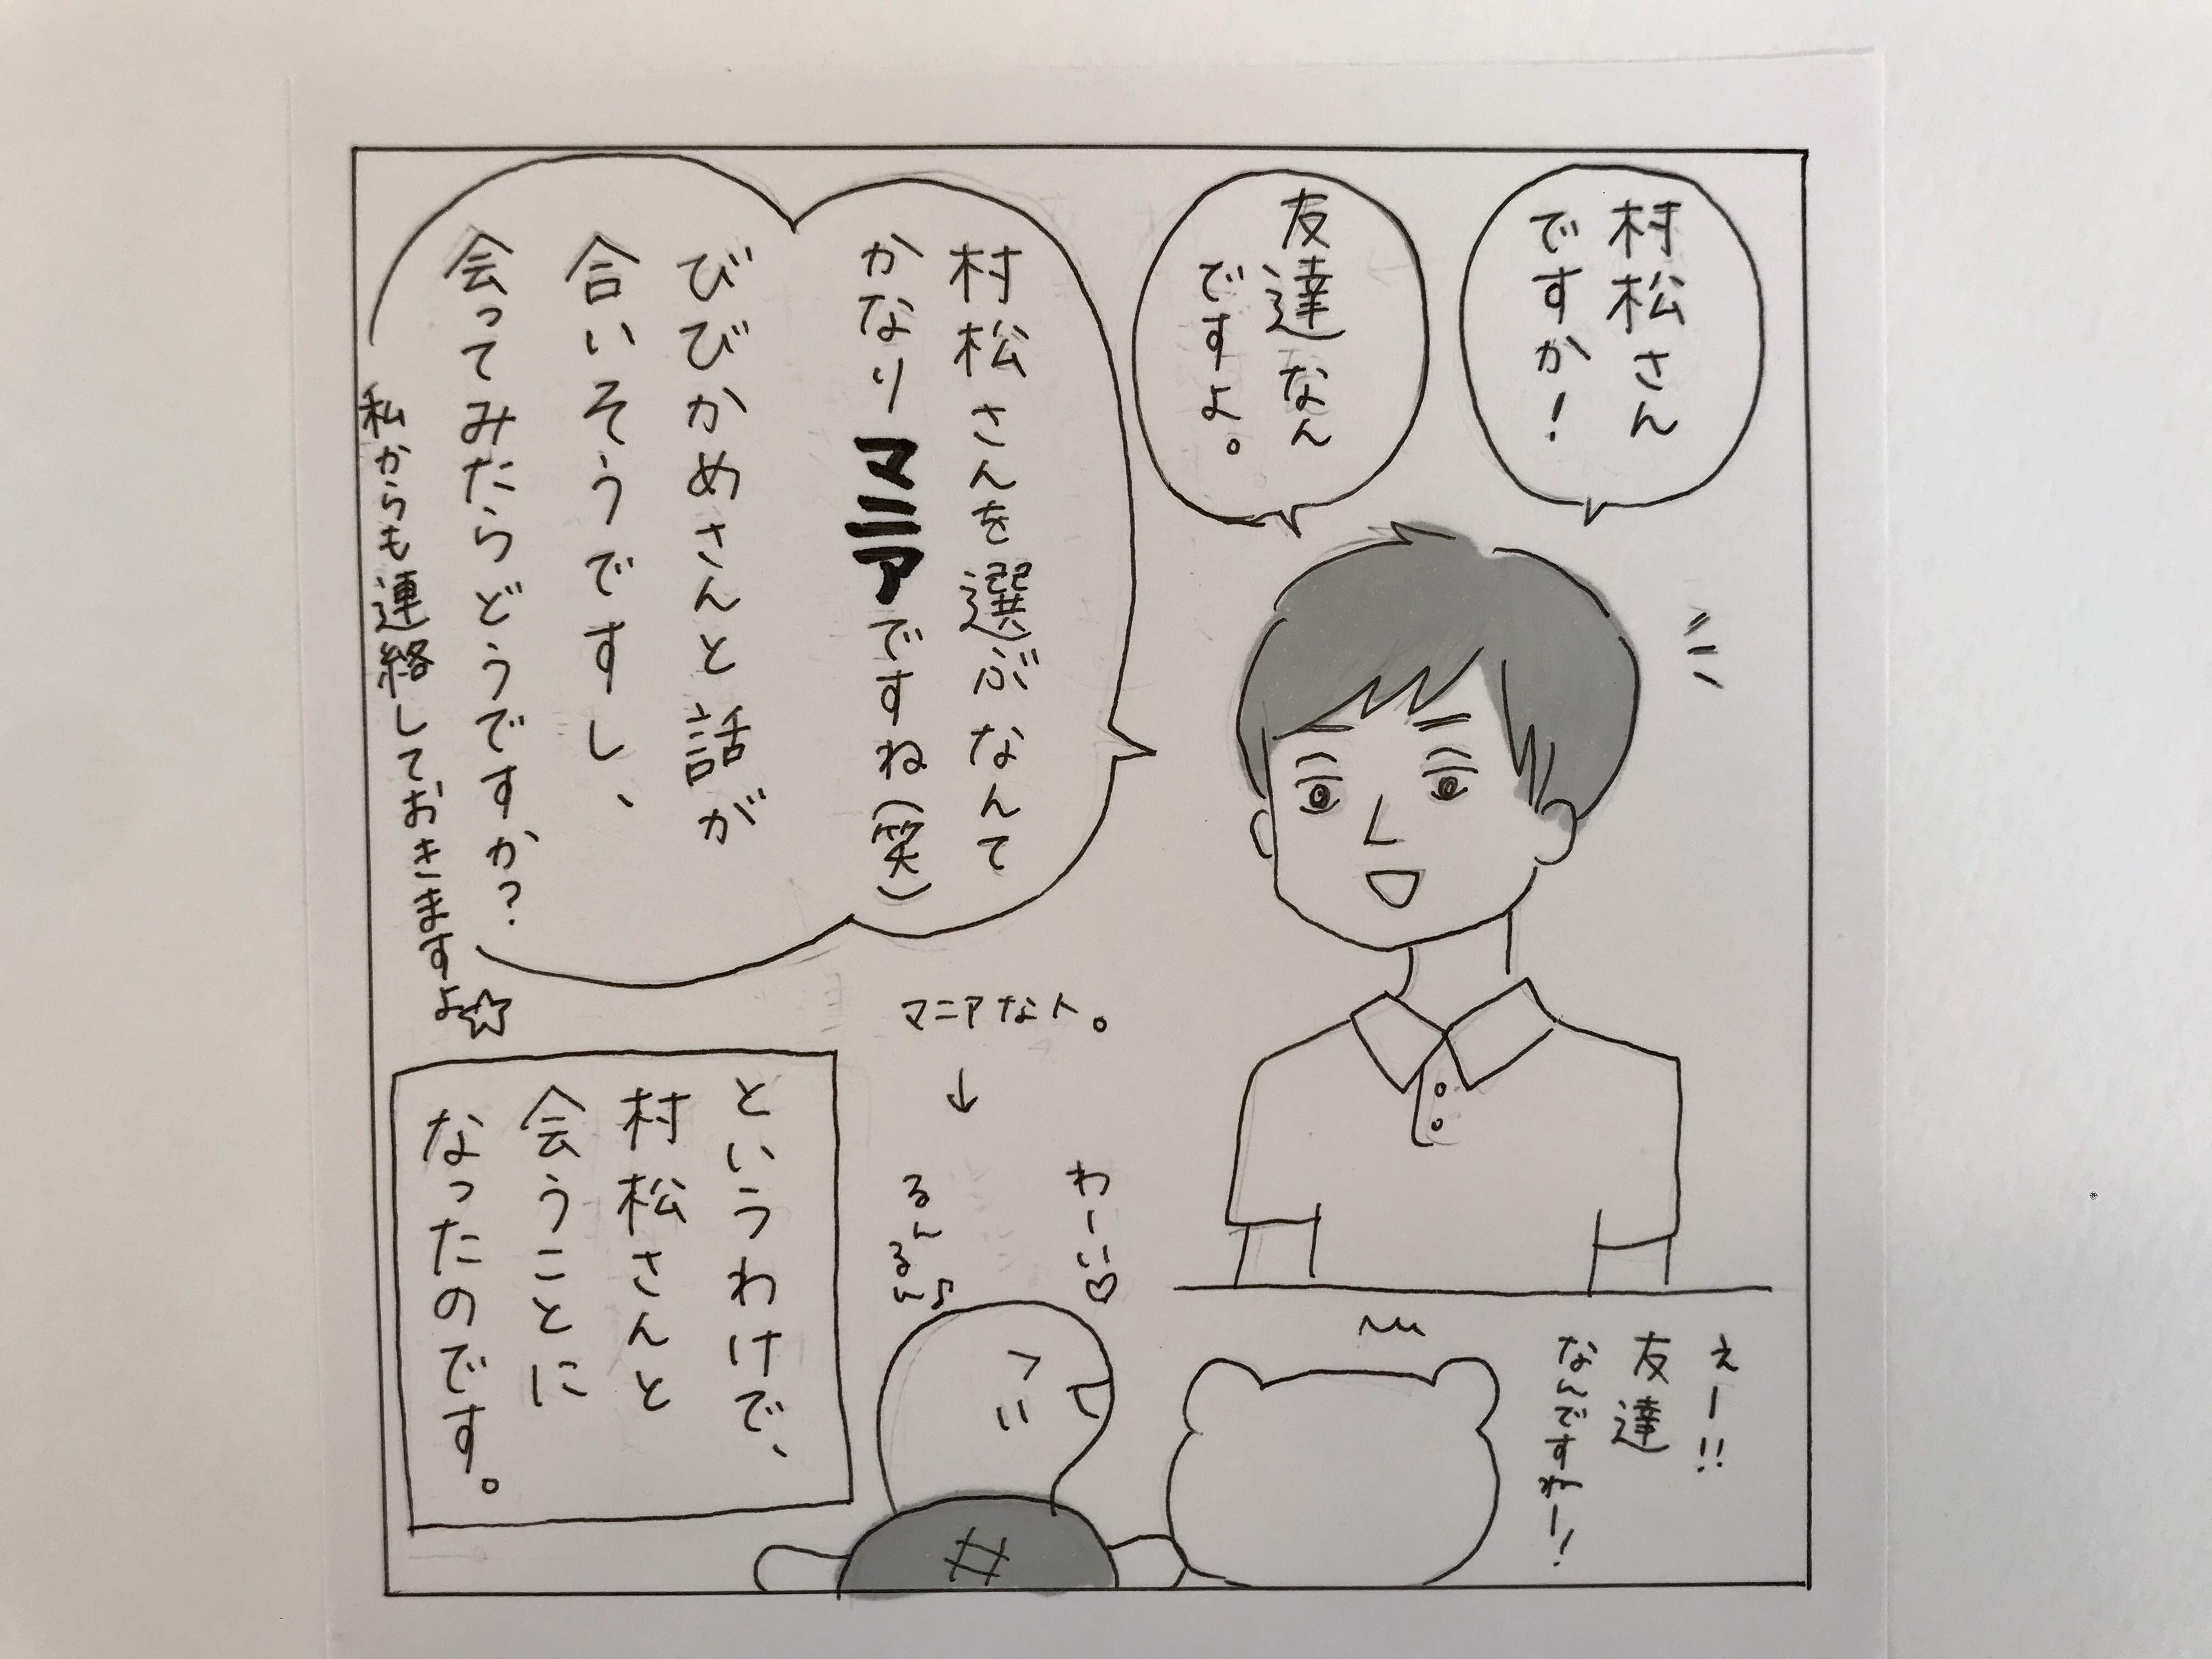 村松さん
ですか!
友達なん
ですよ。
村松さんを選ぶなんて
かなりマニアですね(笑)
びびかめさんと話が
合いそうですし、
会ってみたらどうですか?
私からも連絡しておきますよ☆
えー!!
友達
なんですねー!
マニアな人。
↓
わーい♡
るん
るん♪
というわけで、
村松さんと
会うことに
なったのです。